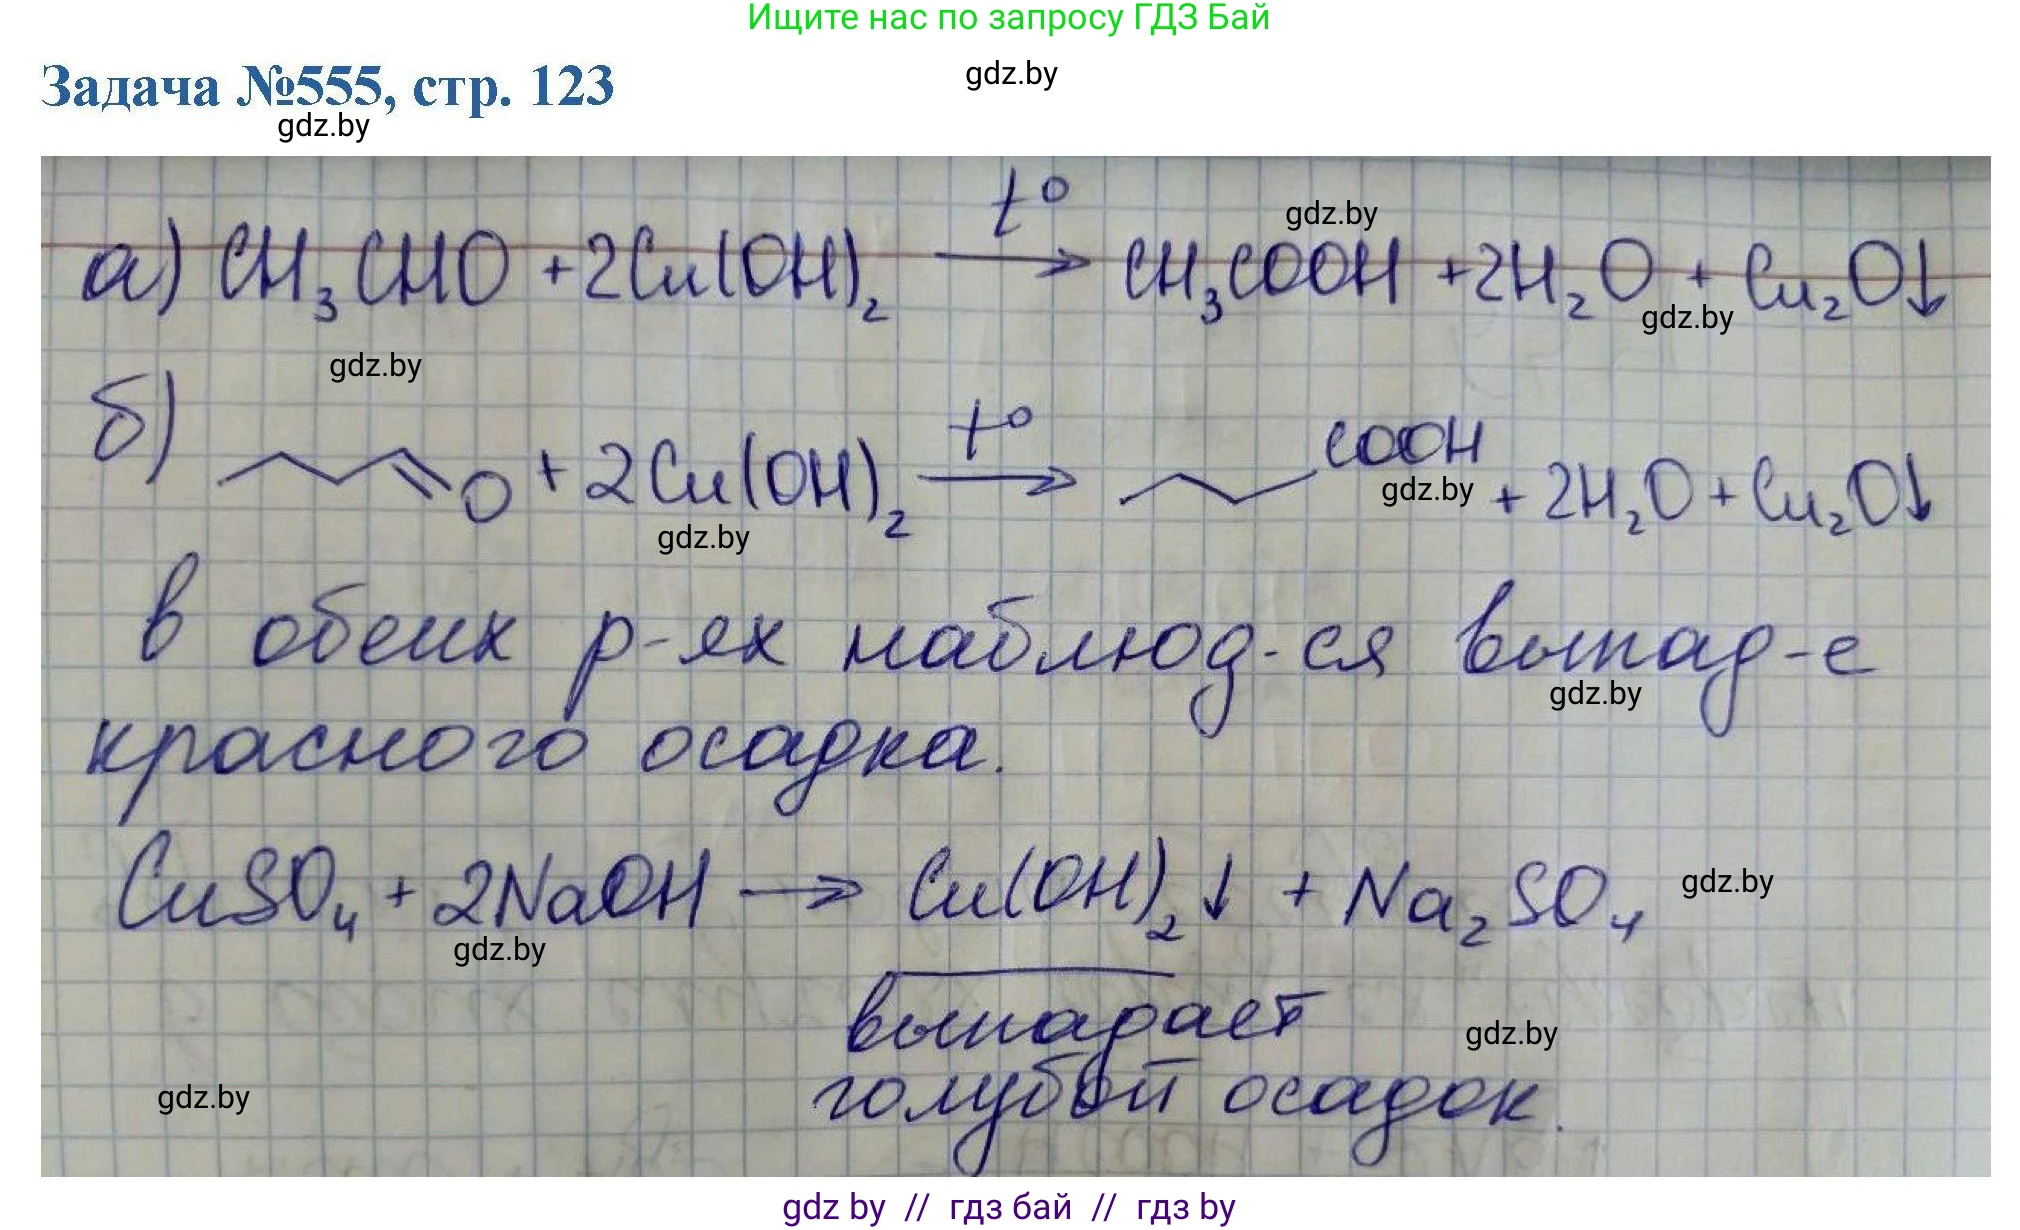 Ищите нас по запросу ГДЗ Бай
Задача №555, стр. 123
gdz.by
gdz.by
а) CH₃CHO + 2Cu(OH)₂ →(t°) CH₃COOH + 2H₂O + Cu₂O↓
gdz.by
gdz.by
gdz.by
б) O + 2Cu(OH)₂ →(t°) COOH + 2H₂O + Cu₂O↓
gdz.by
gdz.by
в обеих р-ях наблюд-ся выпад-е
gdz.by
красного осадка.
CuSO₄ + 2NaOH → Cu(OH)₂↓ + Na₂SO₄
gdz.by
gdz.by
выпадает
gdz.by
голубой осадок.
gdz.by
gdz by // гдз бай // гдз by